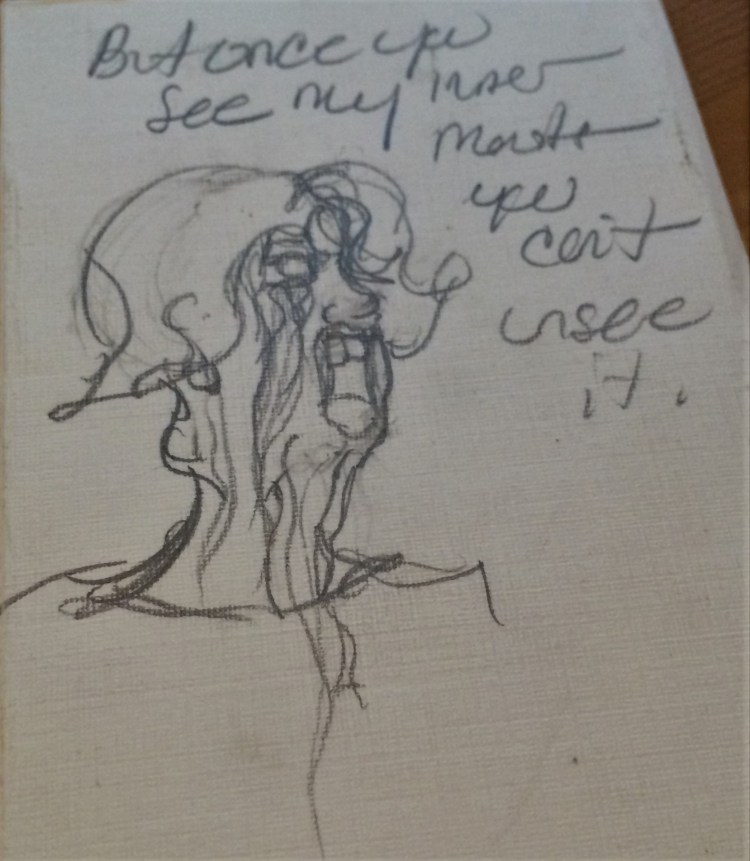 But once you
see my inner
you
can't
unsee
it.